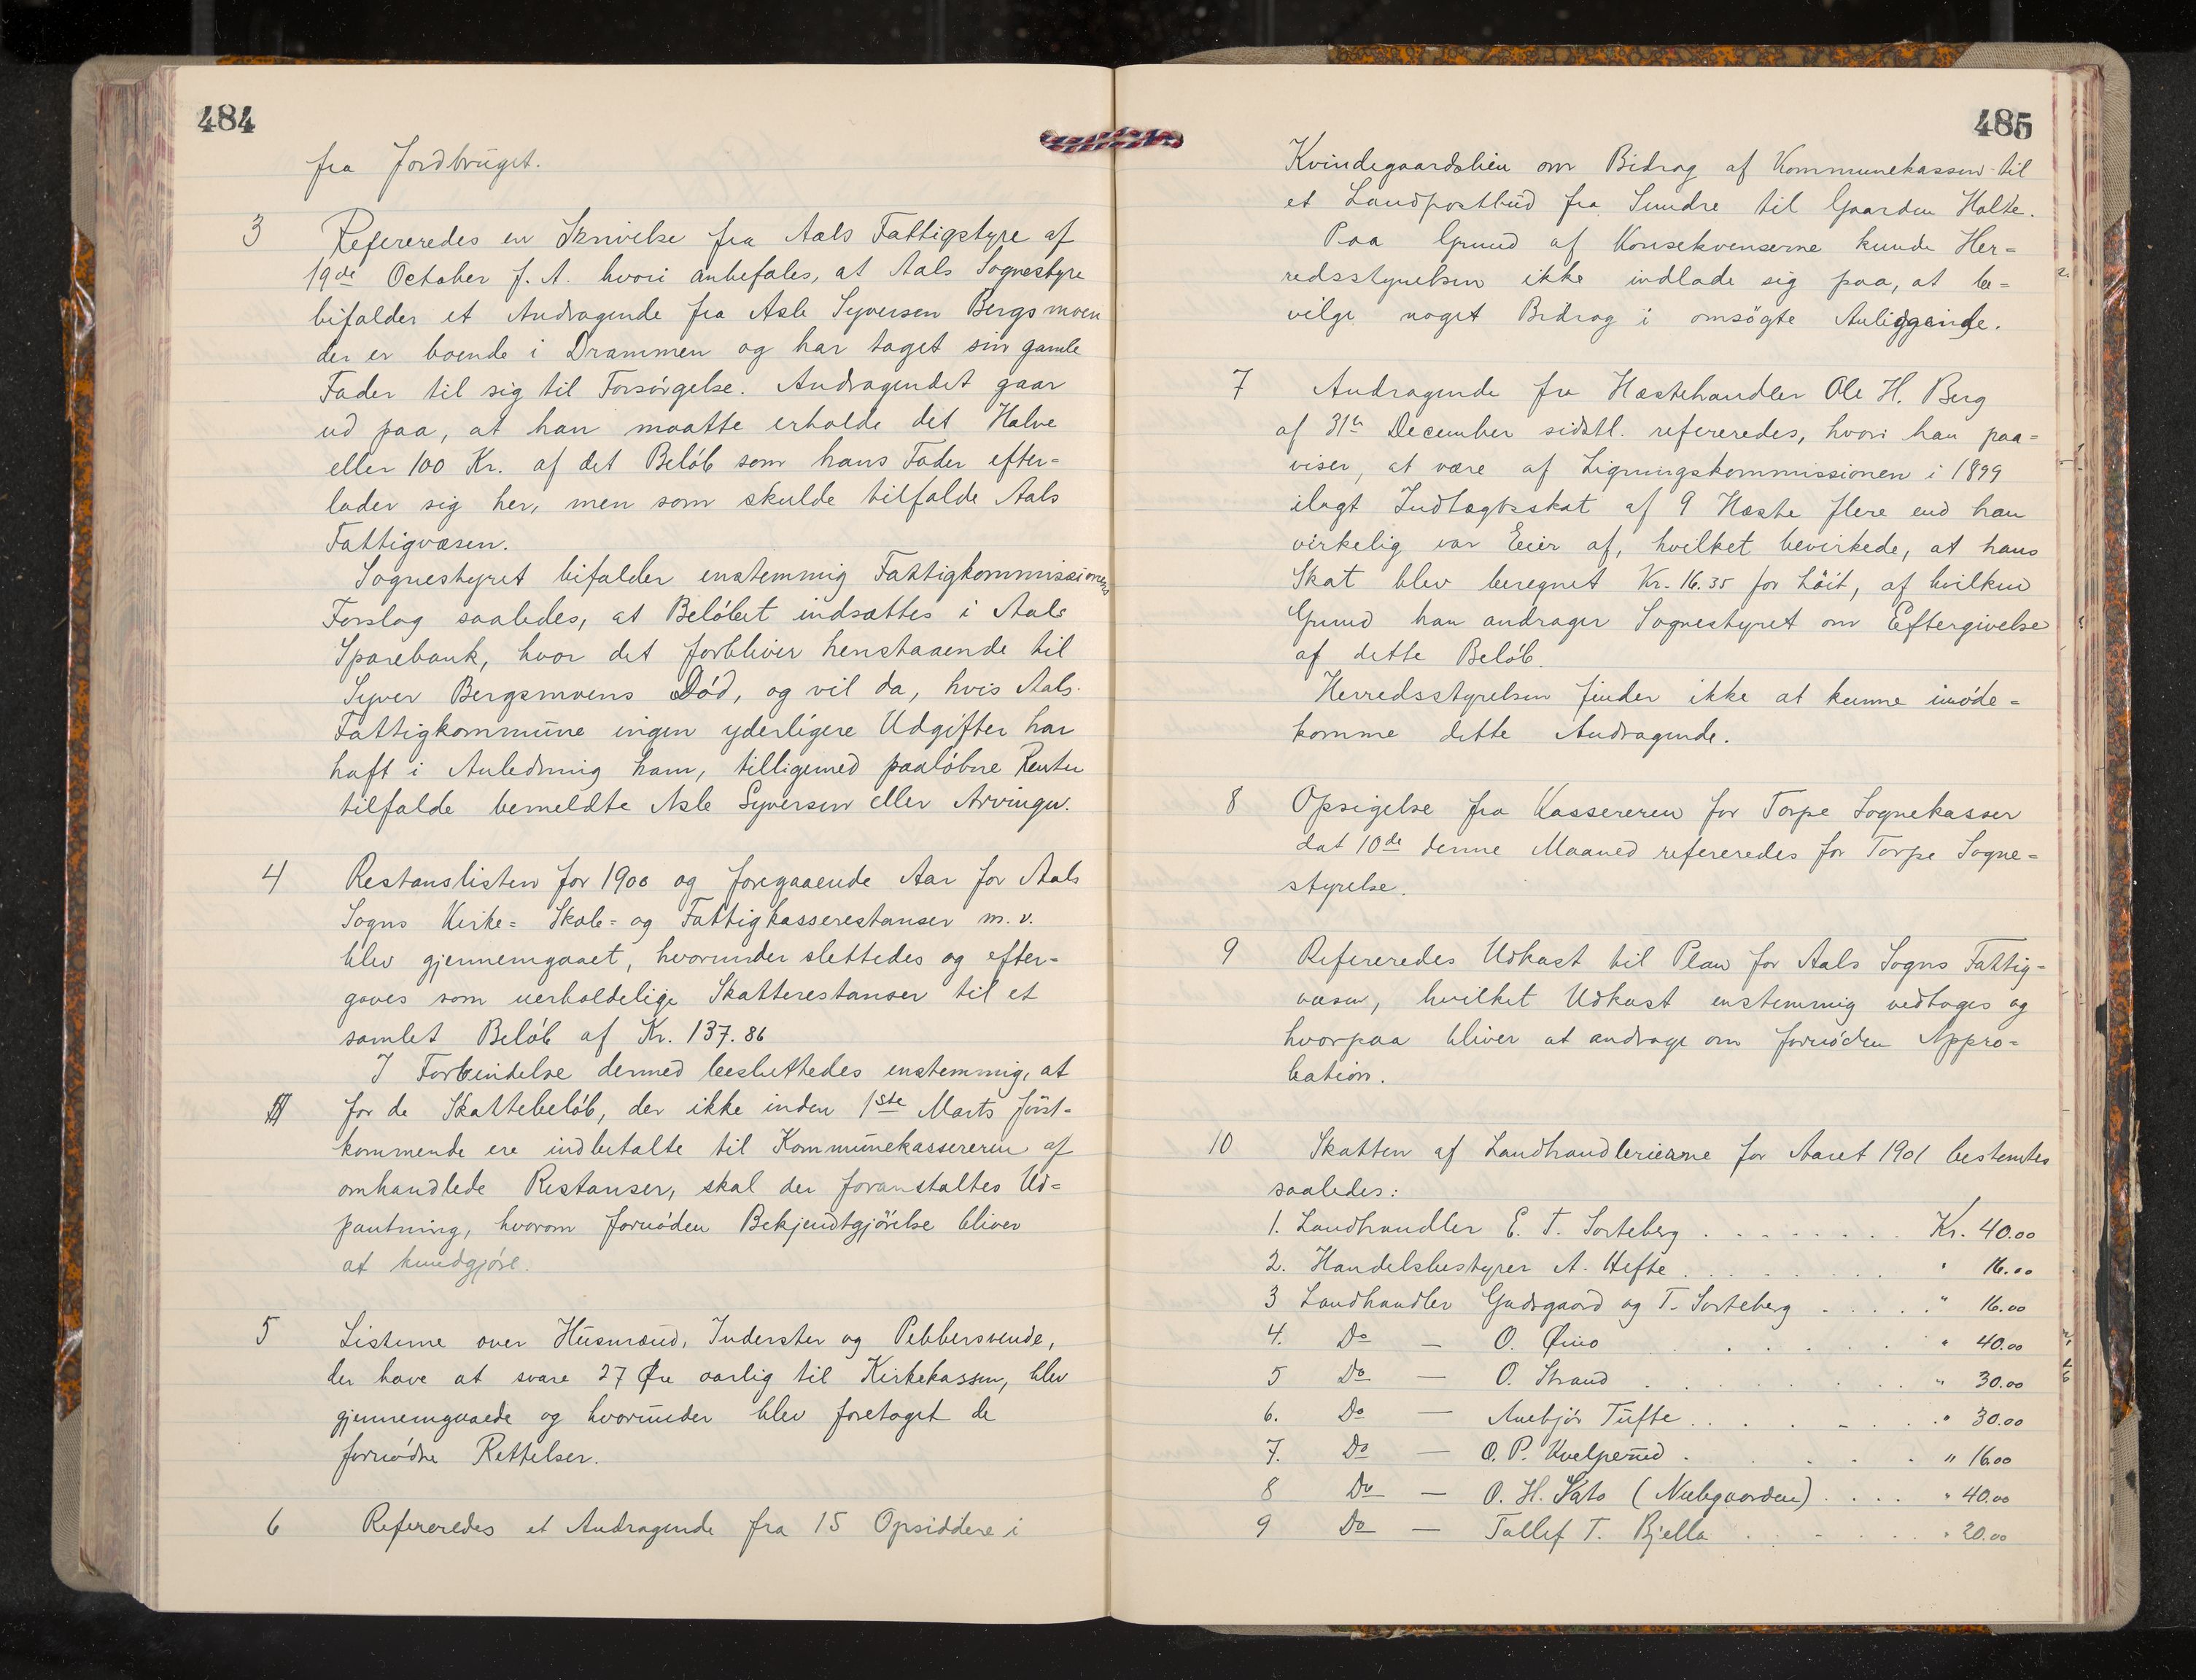 484
fra Jordbruget.
3 Refereredes en Skrivelse fra Aals Fattigstyre af
19de October f. A. hvori anbefales, at Aals Sognestyre
bifalder et Andragende fra Asle Syversen Bergsmoen
der er boende i Drammen og har taget sin gamle
Fader til sig til Forsørgelse. Andragendet gaar
ud paa, at han maatte erholde det Halve
eller 100 Kr. af det Beløb som hans Fader efter=
lader sig her, men som skulde tilfalde Aals
Fattigvæsen.
Sognestyret bifalder enstemmig Fattigkommissionens
Forslag saaledes, at Beløbet indsættes i Aals
Sparebank, hvor det forbliver henstaaende til
Syver Bergsmoens Død, og vil da, hvis Aals
Fattigkommune ingen yderligere Udgifter har
haft i Anledning ham, tilligemed paaløbne Renter
tilfalde bemeldte Asle Syversen eller Arvinger.
4 Restanslisten for 1900 og foregaaende Aar for Aals
Sogns Kirke= Skole= og Fattigkasserestanser m. v.
blev gjennemgaaet, hvorunder slettedes og efter=
gaves som uerholdelige Skatterestanser til et
samlet Beløb af Kr. 137.86
I Forbindelse dermed besluttedes enstemmig, at
for de Skattebeløb, der ikke inden 1ste Marts først=
kommende ere indbetalte til Kommunekassereren af
omhandlede Restanser, skal der foranstaltes Ud=
pantning, hvorom fornøden Bekjendtgjörelse bliver
at kundgjøre.
5 Listerne over Husmænd, Inderster og Pebbersvende,
der have at svare 27 Øre aarlig til Kirkekassen, blev
gjennemgaaede og hvorunder blev foretaget de
fornødne Rettelser.
6 Refereredes et Andragende fra 15 Opsiddere i
485
Kvindegaardslien om Bidrag af Kommunekassen til
et Landpostbud fra Sundre til Gaarden Holte.
Paa Grund af Konsekvenserne kunde Her=
redsstyrelsen ikke indlade sig paa, at be=
vilge noget Bidrag i omsögte Anliggende.
7 Andragende fra Hestehandler Ole H. Berg
af 31te December sidstl. refereredes, hvori han paa=
viser, at være af Ligningskommissionen i 1899
ilagt Indtægtsskat af 9 Heste flere end han
virkelig var Eier af, hvilket bevirkede, at hans
Skat blev beregnet Kr. 16.35 for höit, af hvilken
Grund han andrager Sognestyret om Eftergivelse
af dette Beløb.
Herredsstyrelsen finder ikke at kunne imøde=
komme dette Andragende.
8 Opsigelse fra Kassereren for Torpe Sognekasser
dat 10de denne Maaned refereredes for Torpe Sogne=
styrelse.
9 Refereredes Udkast til Plan for Aals Sogns Fattig=
væsen, hvilket Udkast enstemmig vedtoges og
hvorpaa bliver at andrage om fornøden Appro=
bation.
10 Skatten af Landhandlerierne for Aaret 1901 bestemtes
saaledes:
1. Landhandler E. T. Sorteberg . . . . . . . . Kr. 40.00
2. Handelsbestyrer A. Hefte . . . . . . . . " 16.00
3 Landhandler Gudsgaard og T. Sorteberg . . . . . " 16.00
4. Do — O. Øino . . . . . . " 40.00
5 Do — O. Strand . . . . . . . . " 30.00
6. Do — Anebjör Tufte . . . . . . . " 30.00
7. Do — O. P. Kvelperud . . . . . " 16.00
8 Do — O. H. Sato (Nubgaarden) . . . . " 40.00
9 Do — Tollef T. Bjella . . . . . . " 20.00